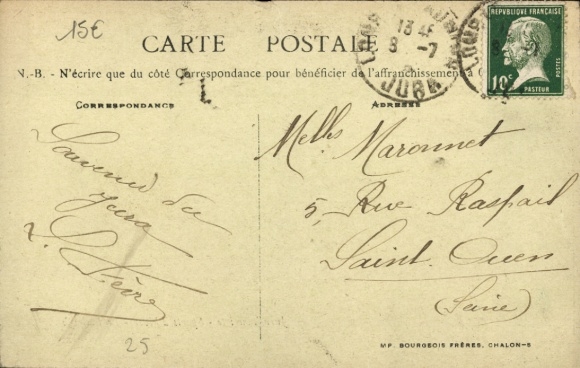 15€
CARTE POSTALE
RÉPUBLIQUE FRANÇAISE
10c
POSTES
PASTEUR
13 45
8 -7
JURA
N.-B. - N'écrire que du côté Correspondance pour bénéficier de l'affranchissement
CORRESPONDANCE
ADRESSE
Souvenir du
Jura
Melles Maronnet
5, Rue Raspail
Saint-Ouen
(Seine)
25
MP. BOURGEOIS FRÈRES, CHALON-S